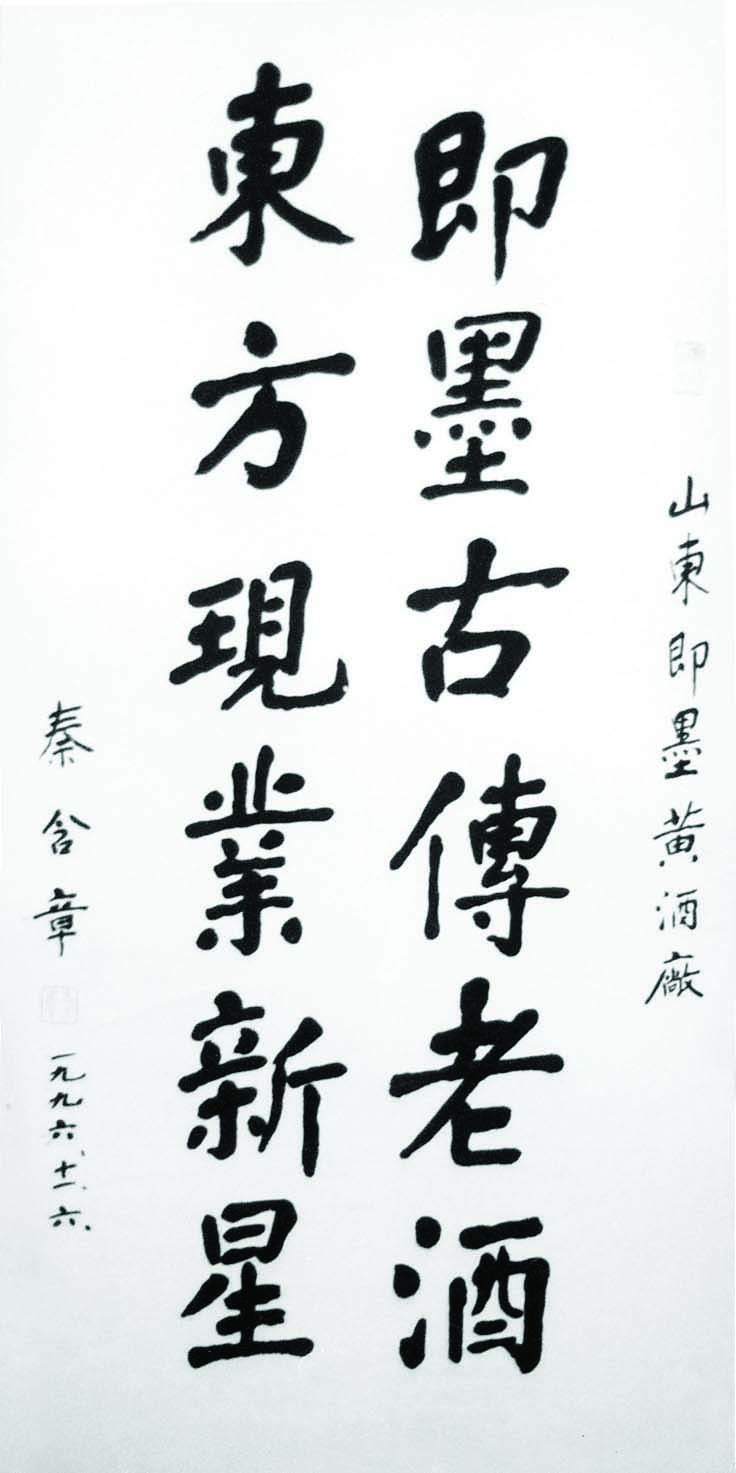 山東即墨黄酒廠
即墨古傳老酒
東方現業新星
秦含章
一九九六、十一、六、